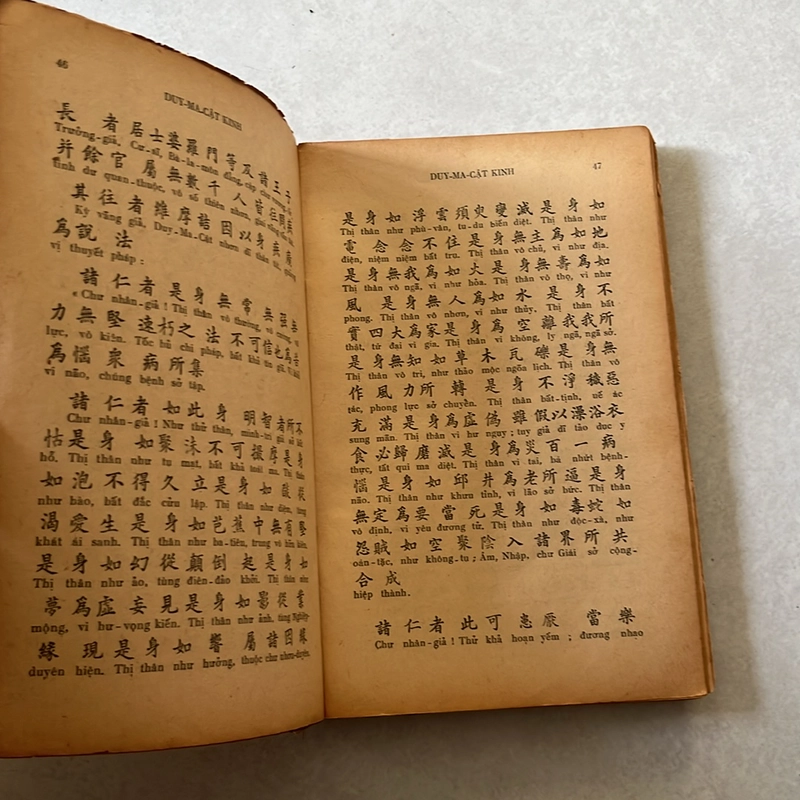 46
DUY-MA-CẬT KINH
長者居士婆羅門等及諸王子
Trưởng-giả, Cư-sĩ, Bà-la-môn đẳng, cập chư vương-tử
并餘官屬無數千人皆往問疾
tinh dư quan-thuộc, vô số thiên nhơn, giai vãng vấn tật.
其往者維摩詰因以身疾廣
Kỳ vãng giả, Duy-Ma-Cật nhơn dĩ thân tật, quảng
為說法
vị thuyết pháp :
諸仁者是身無常無強無
« Chư nhân-giả ! Thị thân vô thường, vô cường, vô
力無堅速朽之法不可信也為苦
lực, vô kiên. Tốc hủ chi pháp, bất khả tín dã. Vi khổ
為惱衆病所集
vi não, chúng bệnh sở tập.
諸仁者如此身明智者所不
Chư nhân-giả ! Như thử thân, minh-trí-giả sở bất
怙是身如聚沫不可撮摩是身
hỗ. Thị thân như tụ mạt, bất khả toát ma. Thị thân
如泡不得久立是身如燄從
như bào, bất đắc cửu lập. Thị thân như diệm, tùng
渴愛生是身如芭蕉中無有堅
khát ái sanh. Thị thân như ba-tiêu, trung vô hữu kiên.
是身如幻從顛倒起是身如
Thị thân như ảo, tùng điên-đảo khởi. Thị thân như
夢為虛妄見是身如影從業
mộng, vi hư-vọng kiến. Thị thân như ảnh, tùng Nghiệp-
緣現是身如響屬諸因緣
duyên hiện. Thị thân như hưởng, thuộc chư nhơn-duyên.
DUY-MA-CẬT KINH
47
是身如浮雲須臾變滅是身如
Thị thân như phù-vân, tu-du biến diệt. Thị thân như
電念念不住是身無主為如地
điện, niệm niệm bất trụ. Thị thân vô chủ, vi như địa.
是身無我為如火是身無壽為如
Thị thân vô ngã, vi như hỏa. Thị thân vô thọ, vi như
風是身無人為如水是身不
phong. Thị thân vô nhơn, vi như thủy. Thị thân bất
實四大為家是身為空離我我所
thật, tứ đại vi gia. Thị thân vi không, ly ngã, ngã sở.
是身無知如草木瓦礫是身無
Thị thân vô tri, như thảo mộc ngõa lịch. Thị thân vô
作風力所轉是身不淨穢惡
tác, phong lực sở chuyển. Thị thân bất-tịnh, uế ác
充滿是身為虛偽雖假以澡浴衣
sung mãn. Thị thân vi hư ngụy ; tuy giả dĩ tảo dục y
食必歸磨滅是身為災百一病
thực, tất qui ma diệt. Thị thân vi tai, bá nhứt bệnh-
惱是身如邱井為老所逼是身
não. Thị thân như khưu tỉnh, vi lão sở bức. Thị thân
無定為要當死是身如毒蛇如
vô định, vi yêu đương tử. Thị thân như độc-xà, như
怨賊如空聚陰入諸界所共
oán-tặc, như không-tụ ; Ấm, Nhập, chư Giái sở cộng-
合成
hiệp thành.
諸仁者此可患厭當樂
Chư nhân-giả ! Thử khả hoạn yếm ; đương nhao